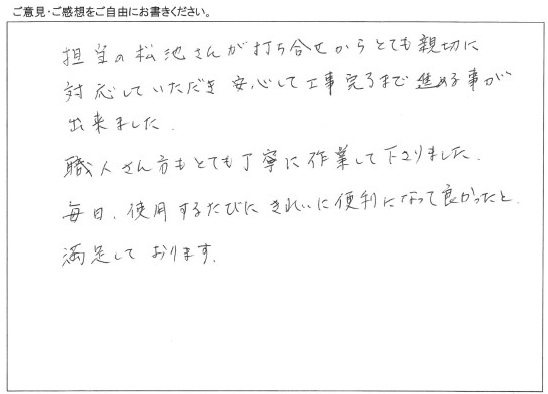 ご意見・ご感想をご自由にお書きください。
担当の松池さんが打ち合せからとても親切に
対応していただき 安心して工事完了まで進める事が
出来ました.
職人さん方もとても丁寧に作業して下さりました.
毎日、使用するたびに きれいに便利になって良かったと、
満足しております.